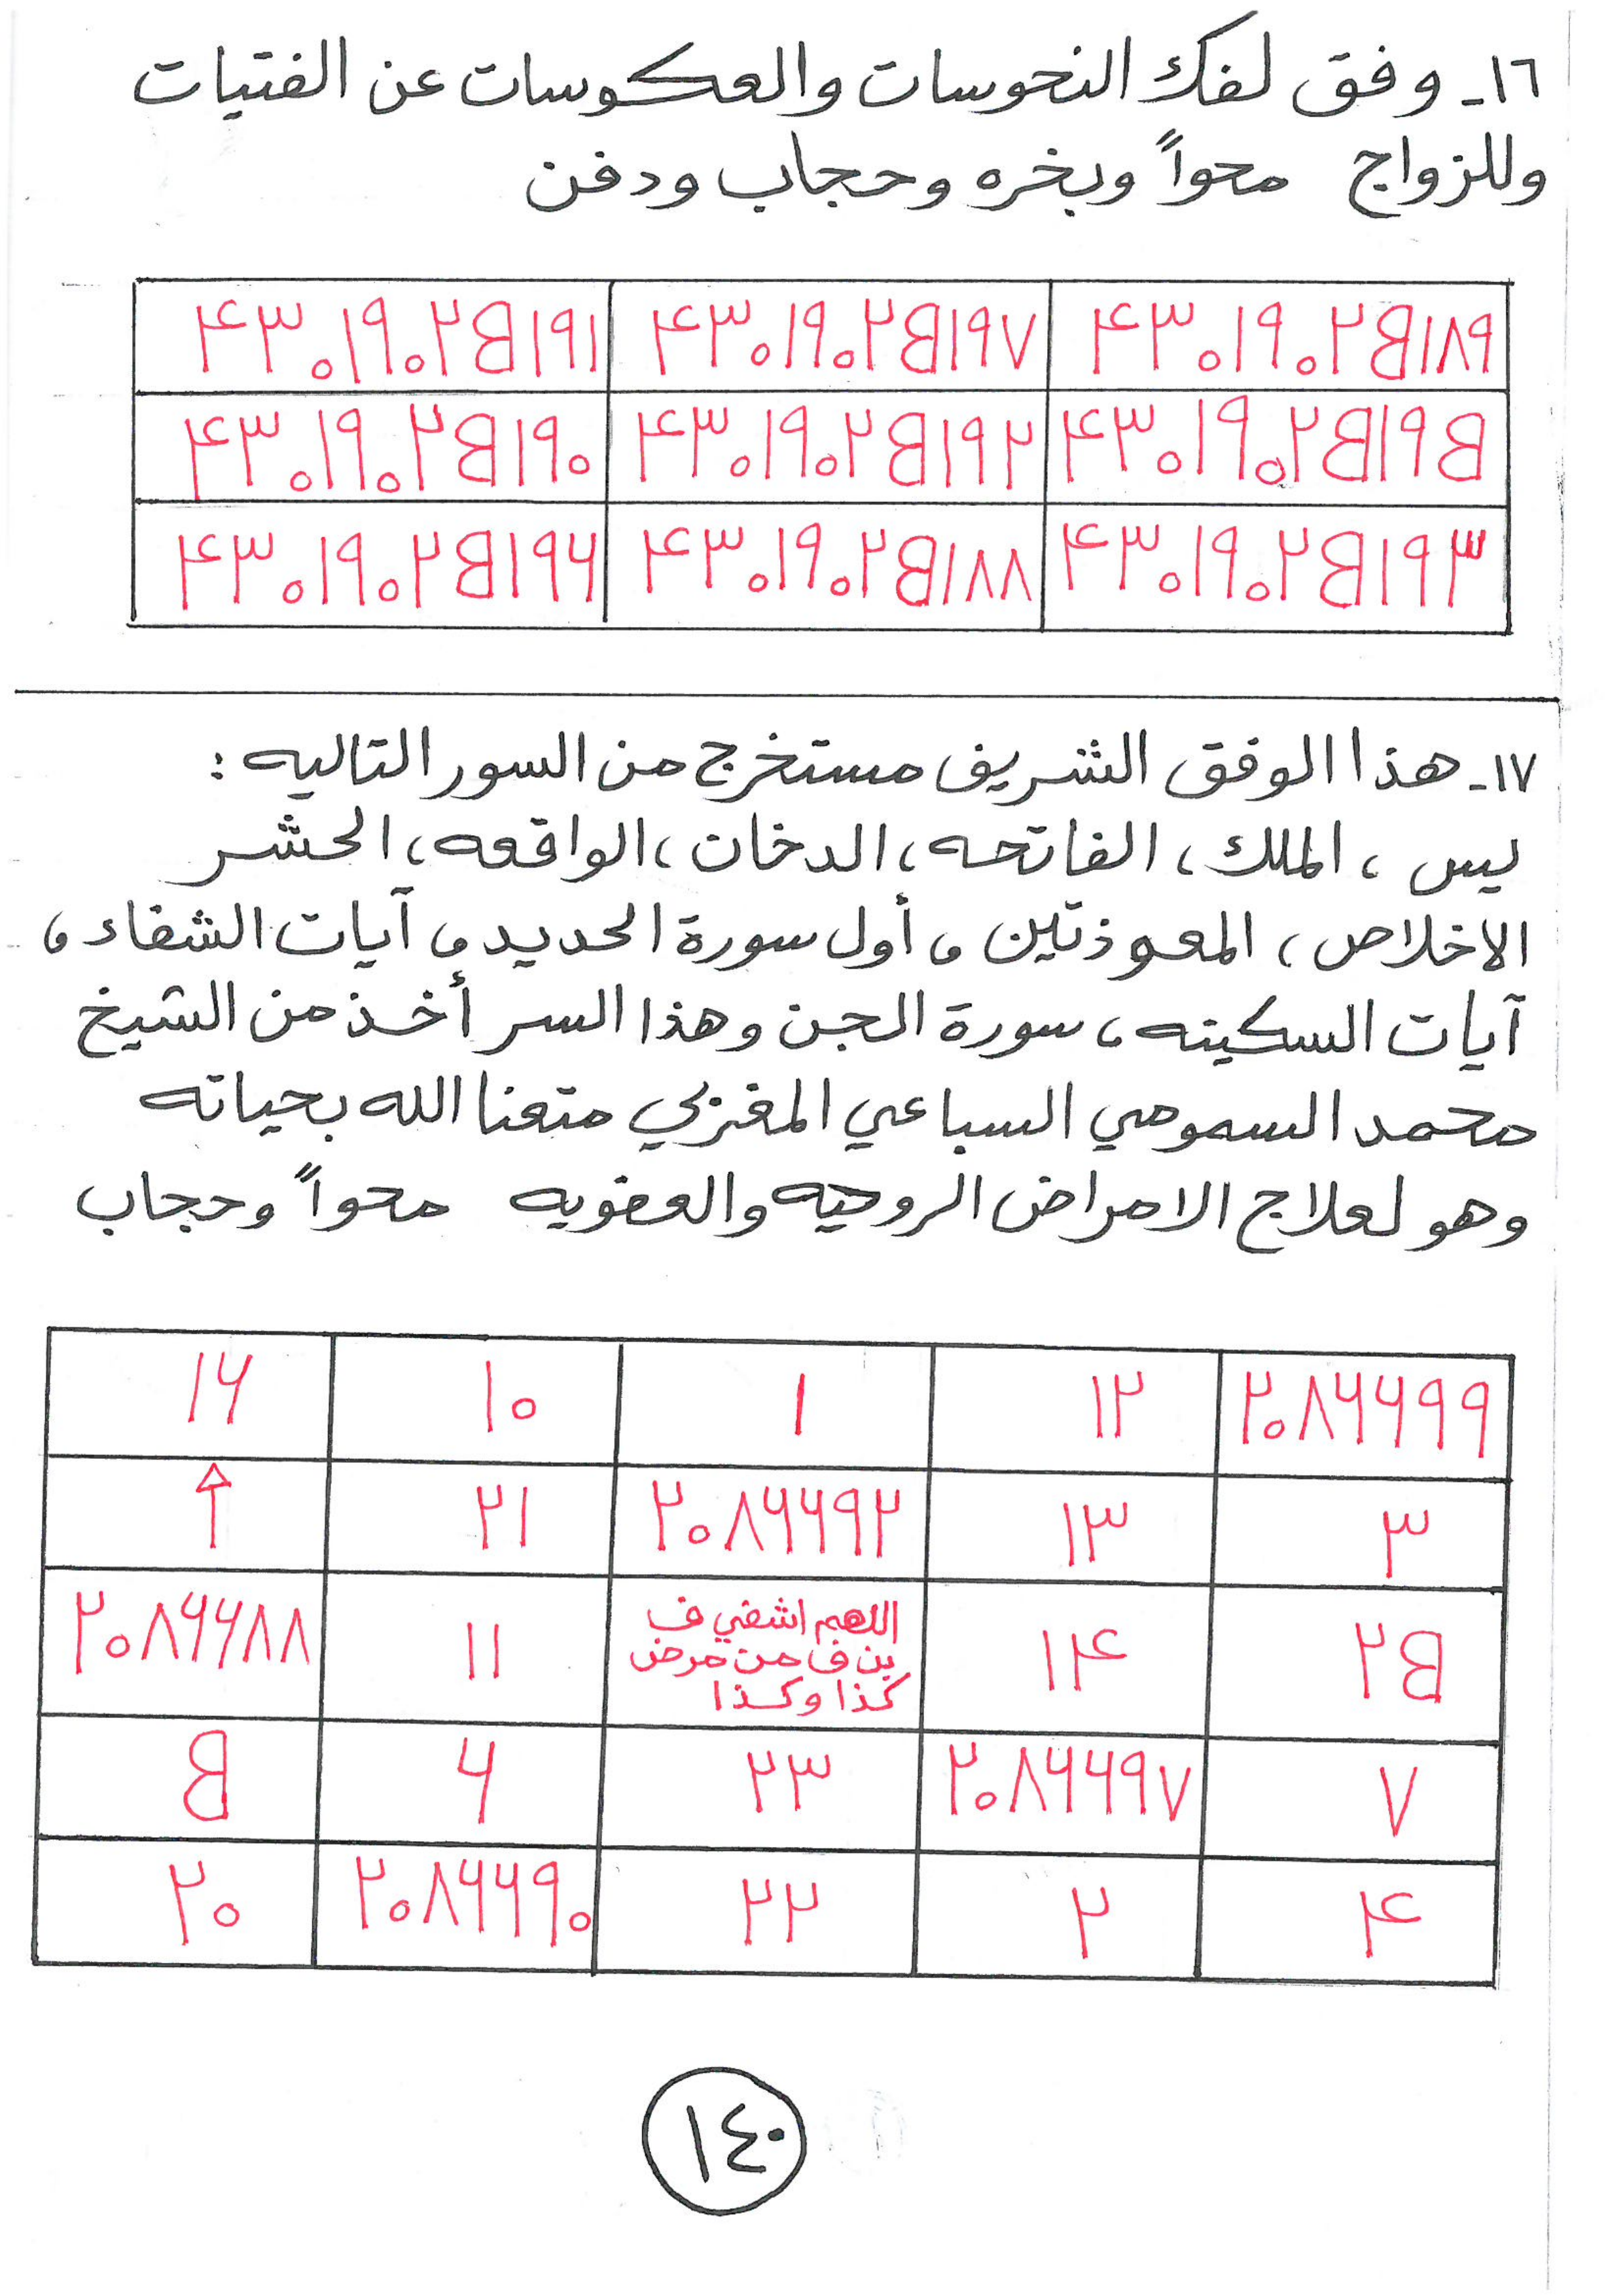 ١٦- وفق لفك النحوسات والعكوسات عن الفتيات
وللزواج محواً وبخره وحجاب ودفن
٤٣٠١٩٠٢٥١٨٩ ٤٣٠١٩٠٢٥١٩٧ ٤٣٠١٩٠٢٥١٩١
٤٣٠١٩٠٢٥١٩٥ ٤٣٠١٩٠٢٥١٩٢ ٤٣٠١٩٠٢٥١٩٠
٤٣٠١٩٠٢٥١٩٣ ٤٣٠١٩٠٢٥١٨٨ ٤٣٠١٩٠٢٥١٩٦
١٧- هذا الوفق الشريف مستخرج من السور التاليه :
يس ، الملك ، الفاتحه ، الدخان ، الواقعه ، الحشر
الاخلاص ، المعوذتين ، أول سورة الحديد ، آيات الشفاء ،
آيات السكينه ، سورة الجن وهذا السر أخذ من الشيخ
محمد السمومي السباعي المغربي متعنا الله بحياته
وهو لعلاج الامراض الروحيه والعضويه محواً وحجاب
٢٠٨٦٦٩٩ ١٢ ١ ١٠ ١٦
٣ ١٣ ٢٠٨٦٦٩٢ ٢١ ↑
٢٥ ١٤ اللهم اشفي ف ١١ ٢٠٨٦٦٨٨
بن ف من مرض
كذا وكذا
٧ ٢٠٨٦٦٩٧ ٢٣ ٦ ٥
٤ ٢ ٢٢ ٢٠٨٦٦٩٠ ٢٠
١٤٠